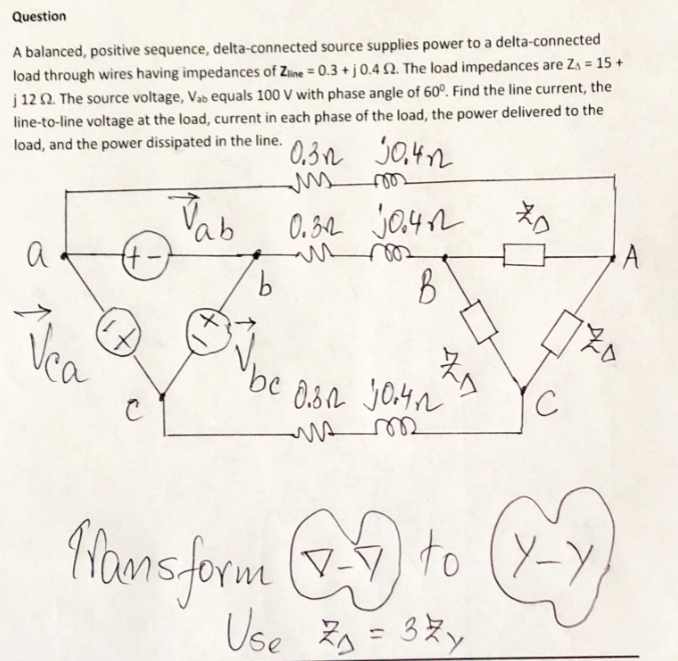 Question
A balanced, positive sequence, delta-connected source supplies power to a delta-connected
load through wires having impedances of Zline = 0.3 + j 0.4 Ω. The load impedances are ZΔ = 15 +
j 12 Ω. The source voltage, Vab equals 100 V with phase angle of 60⁰. Find the line current, the
line-to-line voltage at the load, current in each phase of the load, the power delivered to the
load, and the power dissipated in the line.
0.3Ω j0.4Ω
Vab 0.3Ω j0.4Ω ZΔ
a + - A
b B
Vca - + + - Vbc ZΔ ZΔ
c 0.3Ω j0.4Ω C
Transform ∇-∇ to Y-Y
Use ZΔ = 3ZY